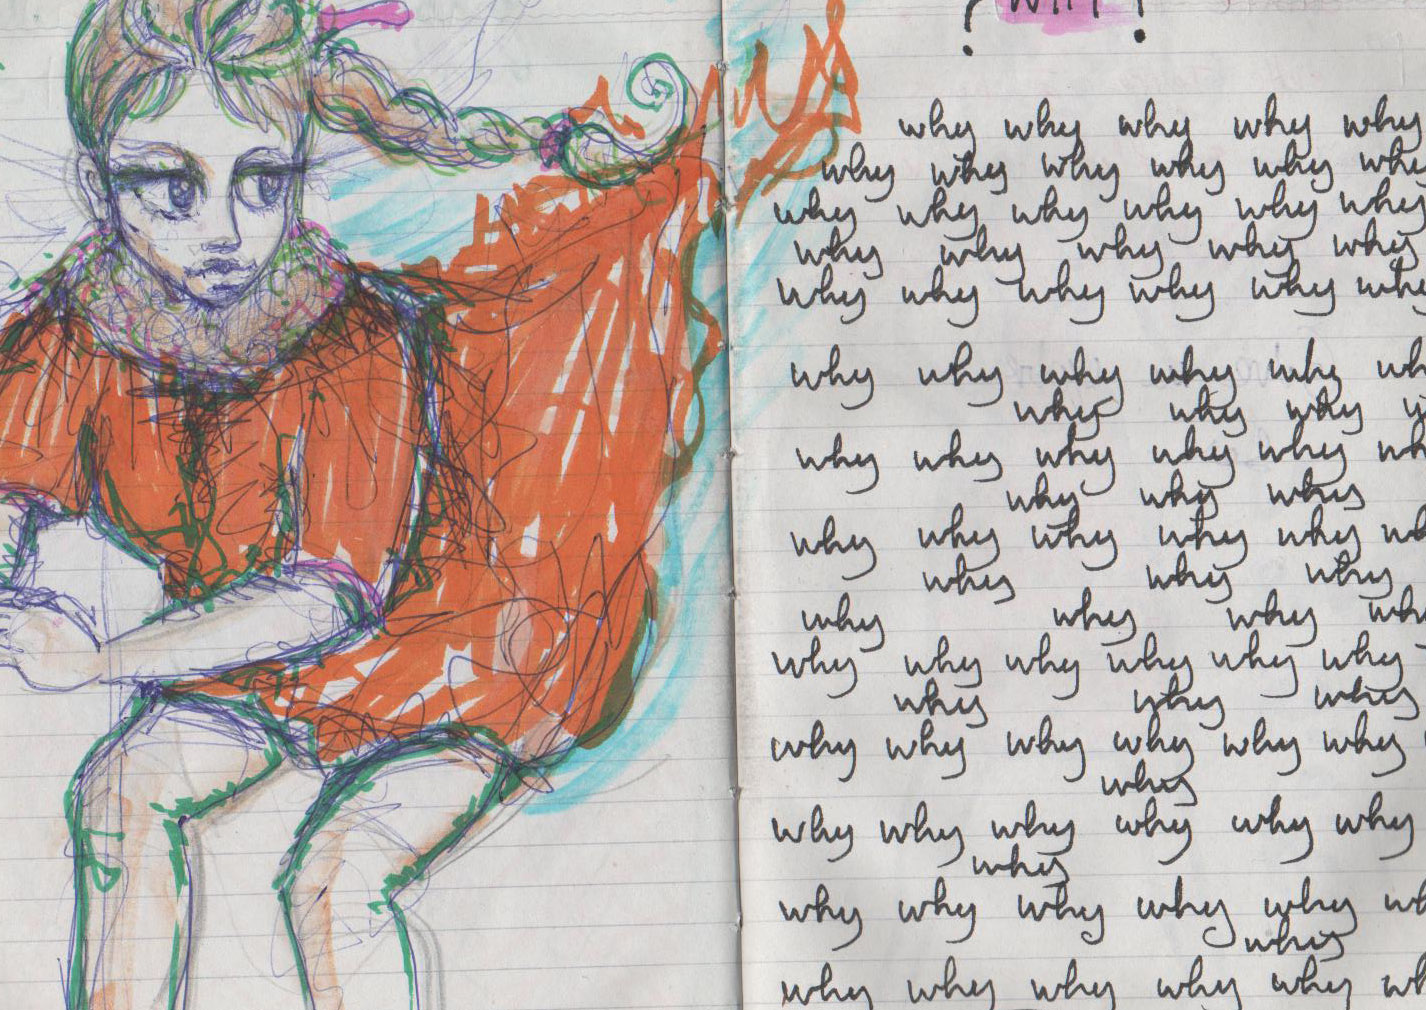 WHY
why why why why why
why why why why why wh
why why why why why why
why why why why why
why why why why why wh
why why why why why wh
why why why w
why why why why why wh
why why why
why why why why why wh
why why why
why why why wh
why why why why why why
why why why
why why why why why why
why
why why why why why why
why
why why why why why wh
why
why why why why why wh